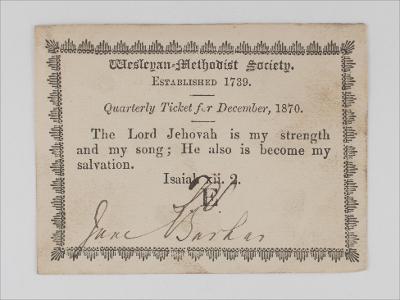 Wesleyan-Methodist Society.
Established 1739.
Quarterly Ticket for December, 1870.
The Lord Jehovah is my strength
and my song; He also is become my
salvation.
Isaiah xii. 2.
E
Jane Barker